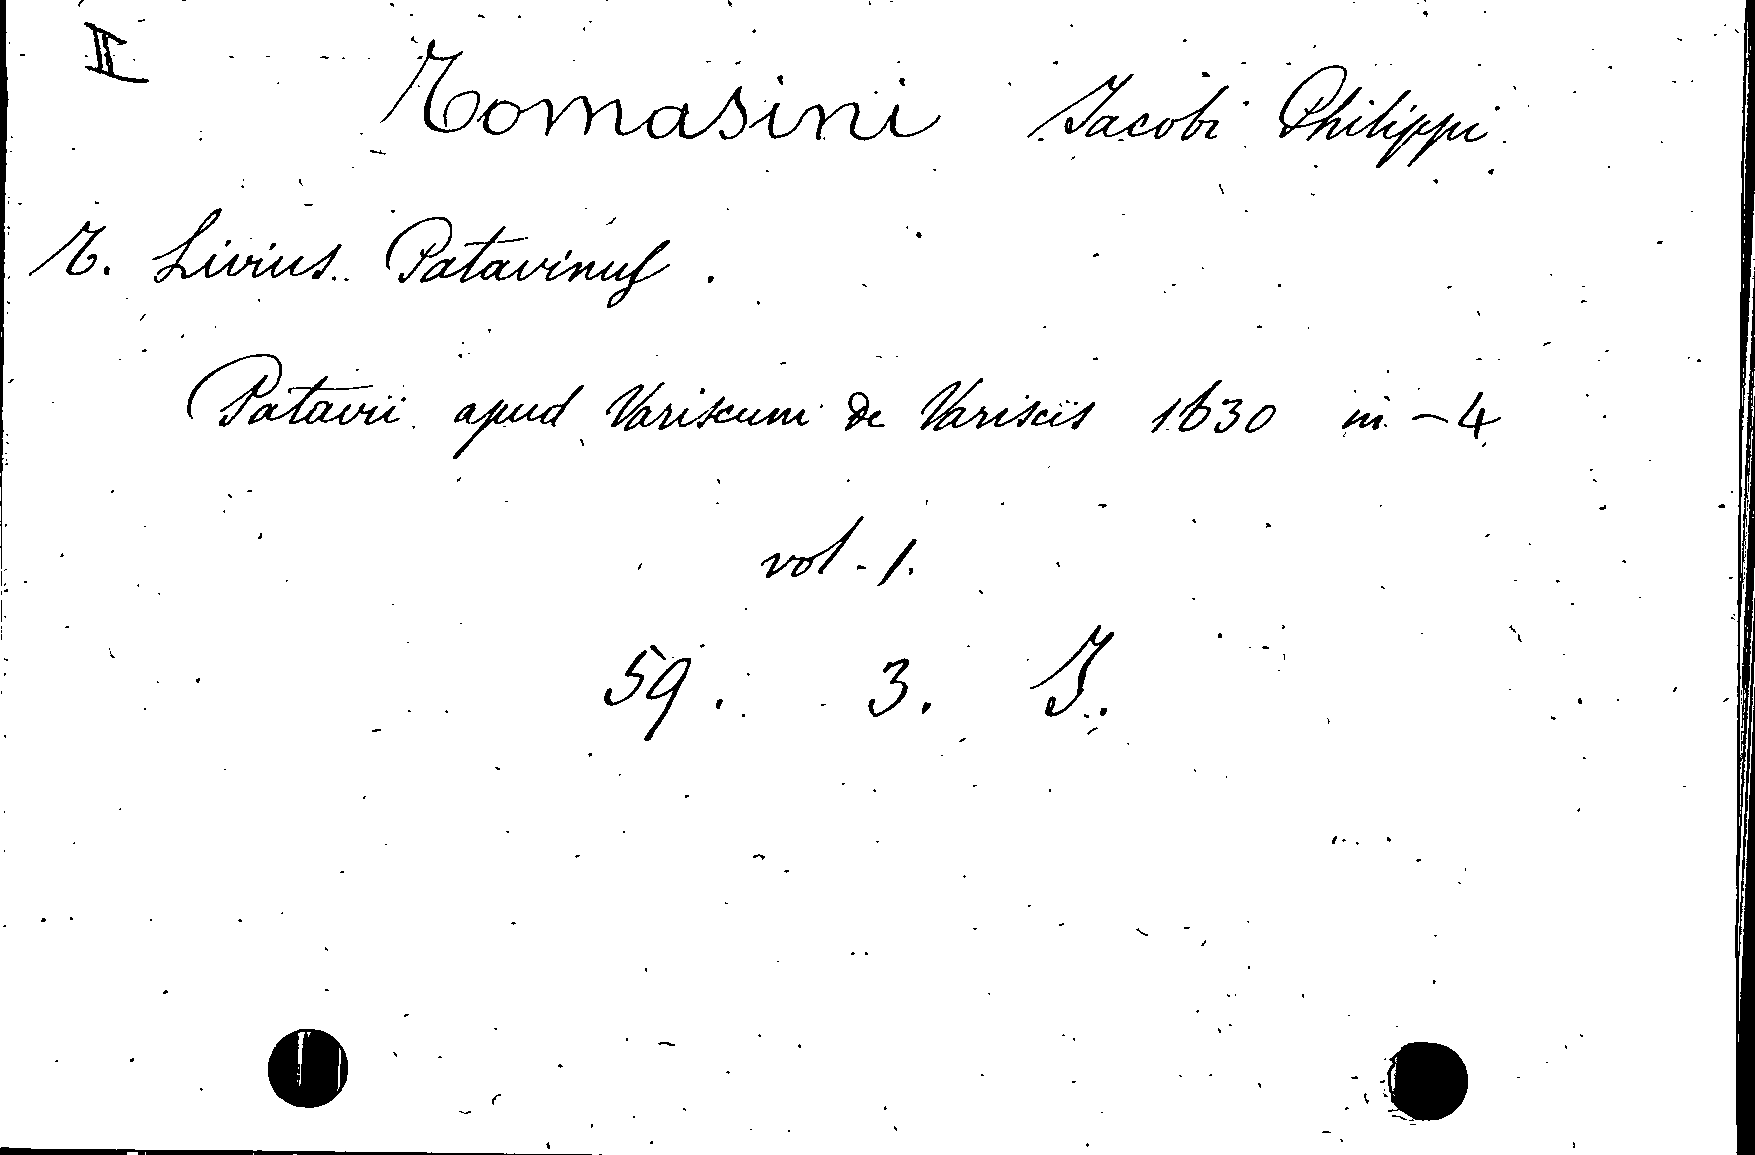 II
Tomasini Jacobi Philippi
T. Livius Patavinus.
Patavii apud Variscum de Variscis 1630 in-4
vol. 1.
59. 3. J.